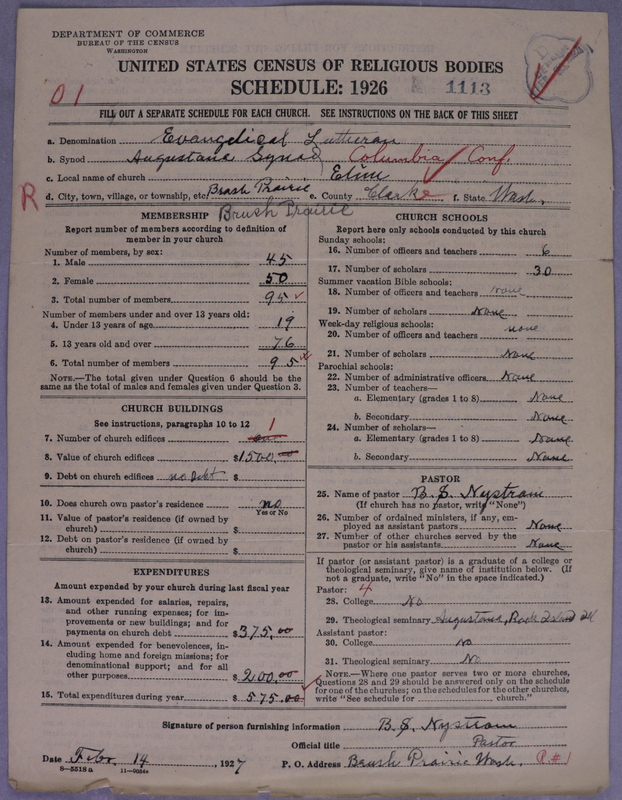 DEPARTMENT OF COMMERCE
BUREAU OF THE CENSUS
WASHINGTON
UNITED STATES CENSUS OF RELIGIOUS BODIES
SCHEDULE: 1926
1113
01
FILL OUT A SEPARATE SCHEDULE FOR EACH CHURCH. SEE INSTRUCTIONS ON THE BACK OF THIS SHEET
a. Denomination Evangelical Lutheran
b. Synod Augustana Synod Columbia Conf.
c. Local name of church Elim
R
d. City, town, village, or township, etc. Brush Prairie e. County Clarke f. State Wash.
Brush Prairie
MEMBERSHIP
Report number of members according to definition of
member in your church
Number of members, by sex:
1. Male 45
2. Female 50
3. Total number of members 95
Number of members under and over 13 years old:
4. Under 13 years of age 19
5. 13 years old and over 76
6. Total number of members 95
NOTE.—The total given under Question 6 should be
the same as the total of males and females given under Question 3.
CHURCH BUILDINGS
See instructions, paragraphs 10 to 12
7. Number of church edifices 1
8. Value of church edifices $1500.
9. Debt on church edifices no debt $
10. Does church own pastor's residence no
Yes or No
11. Value of pastor's residence (if owned by
church) $
12. Debt on pastor's residence (if owned by
church) $
EXPENDITURES
Amount expended by your church during last fiscal year
13. Amount expended for salaries, repairs,
and other running expenses; for im-
provements or new buildings; and for
payments on church debt $375.00
14. Amount expended for benevolences, in-
cluding home and foreign missions; for
denominational support; and for all
other purposes $200.00
15. Total expenditures during year $575.00
CHURCH SCHOOLS
Report here only schools conducted by this church
Sunday schools:
16. Number of officers and teachers 6
17. Number of scholars 30
Summer vacation Bible schools:
18. Number of officers and teachers None
19. Number of scholars None
Week-day religious schools:
20. Number of officers and teachers none
21. Number of scholars None
Parochial schools:
22. Number of administrative officers None
23. Number of teachers—
a. Elementary (grades 1 to 8) None
b. Secondary None
24. Number of scholars—
a. Elementary (grades 1 to 8) None
b. Secondary None
PASTOR
25. Name of pastor B. S. Nystrom
(If church has no pastor, write "None")
26. Number of ordained ministers, if any, em-
ployed as assistant pastors None
27. Number of other churches served by the
pastor or his assistants None
If pastor (or assistant pastor) is a graduate of a college or
theological seminary, give name of institution below. (If
not a graduate, write "No" in the space indicated.)
Pastor: 4
28. College No
29. Theological seminary Augustana, Rock Island Ill
Assistant pastor:
30. College No
31. Theological seminary No
NOTE.—Where one pastor serves two or more churches,
Questions 28 and 29 should be answered only on the schedule
for one of the churches; on the schedules for the other churches,
write "See schedule for church."
Signature of person furnishing information B. S. Nystrom
Official title Pastor
Date Feb. 14, 1927 P. O. Address Brush Prairie Wash. P#1
8—5518a 11—9034